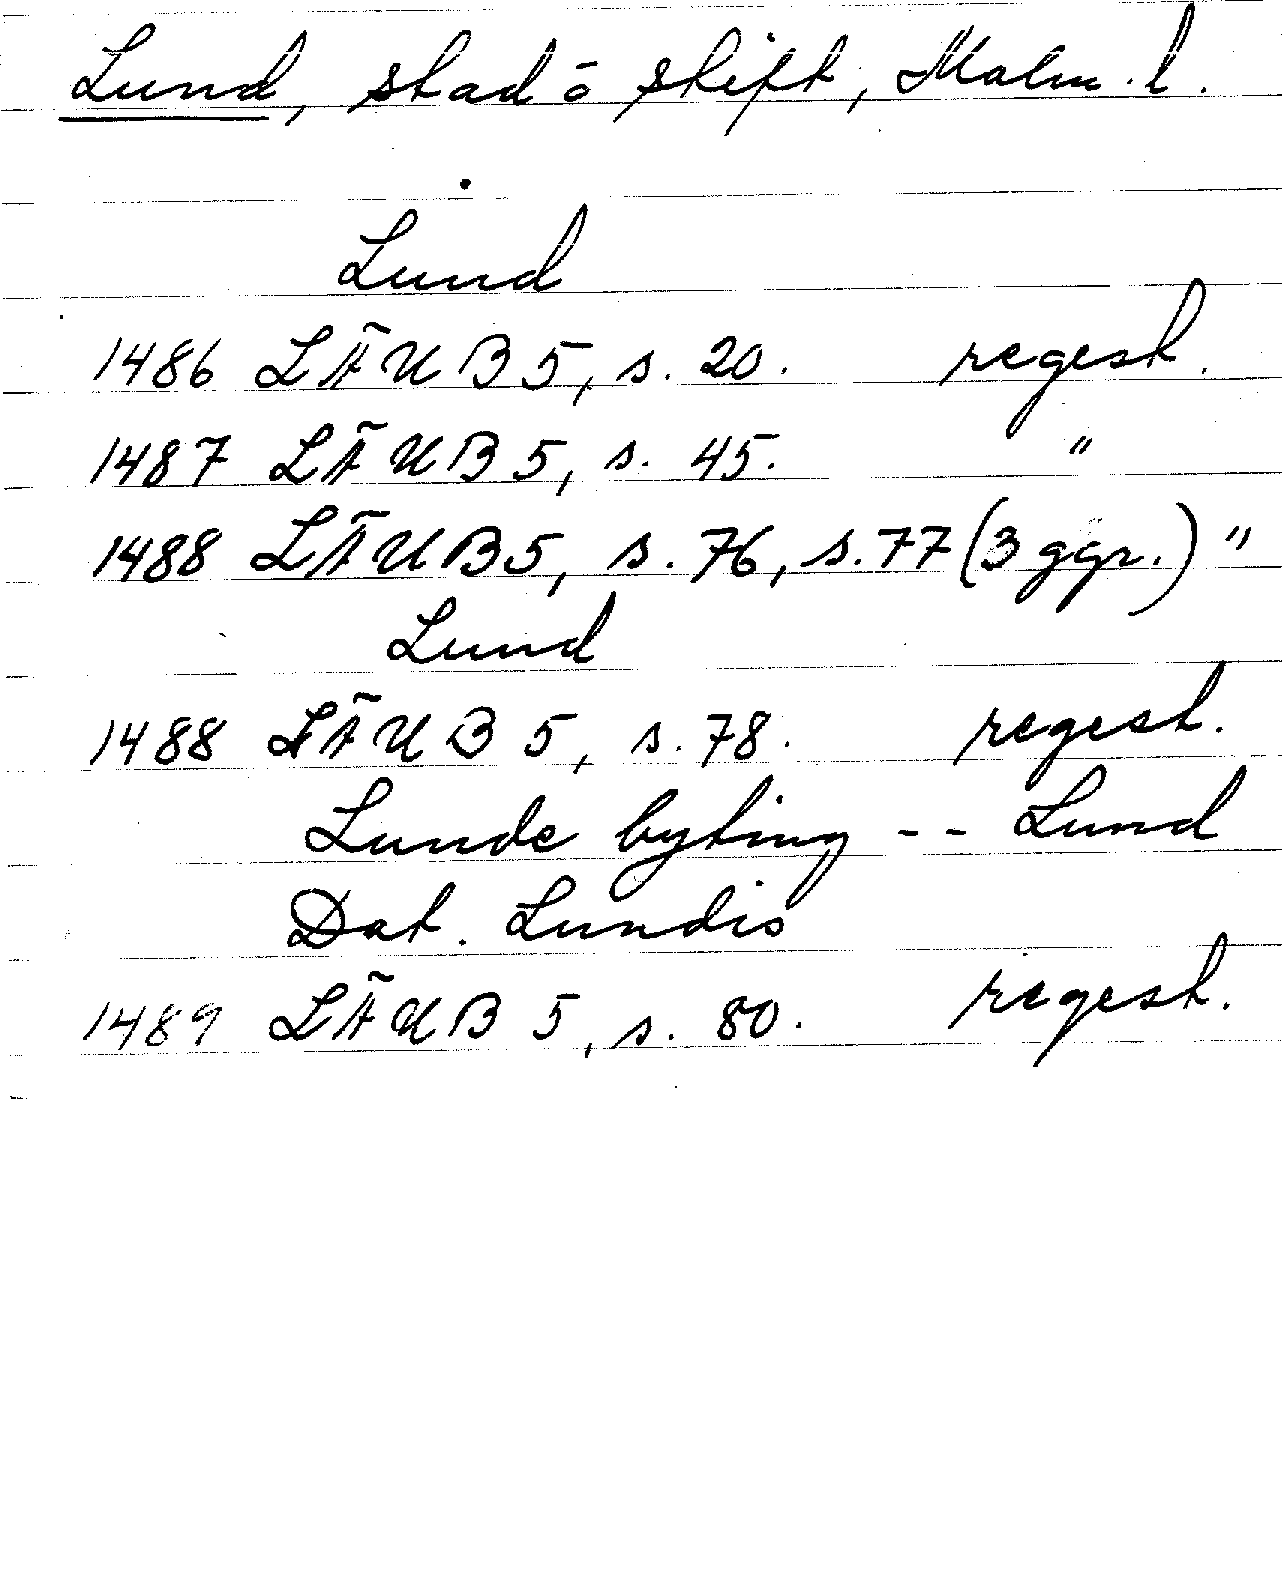 Lund, stad o skift, Malm. l.
Lund
1486 LÄUB 5, s. 20. regest.
1487 LÄUB 5, s. 45. "
1488 LÄUB 5, s. 76, s. 77 (3 ggr.) "
Lund
1488 LÄUB 5, s. 78. regest.
Lunde byting -- Lund
Dat. Lundis
1489 LÄUB 5, s. 80. regest.